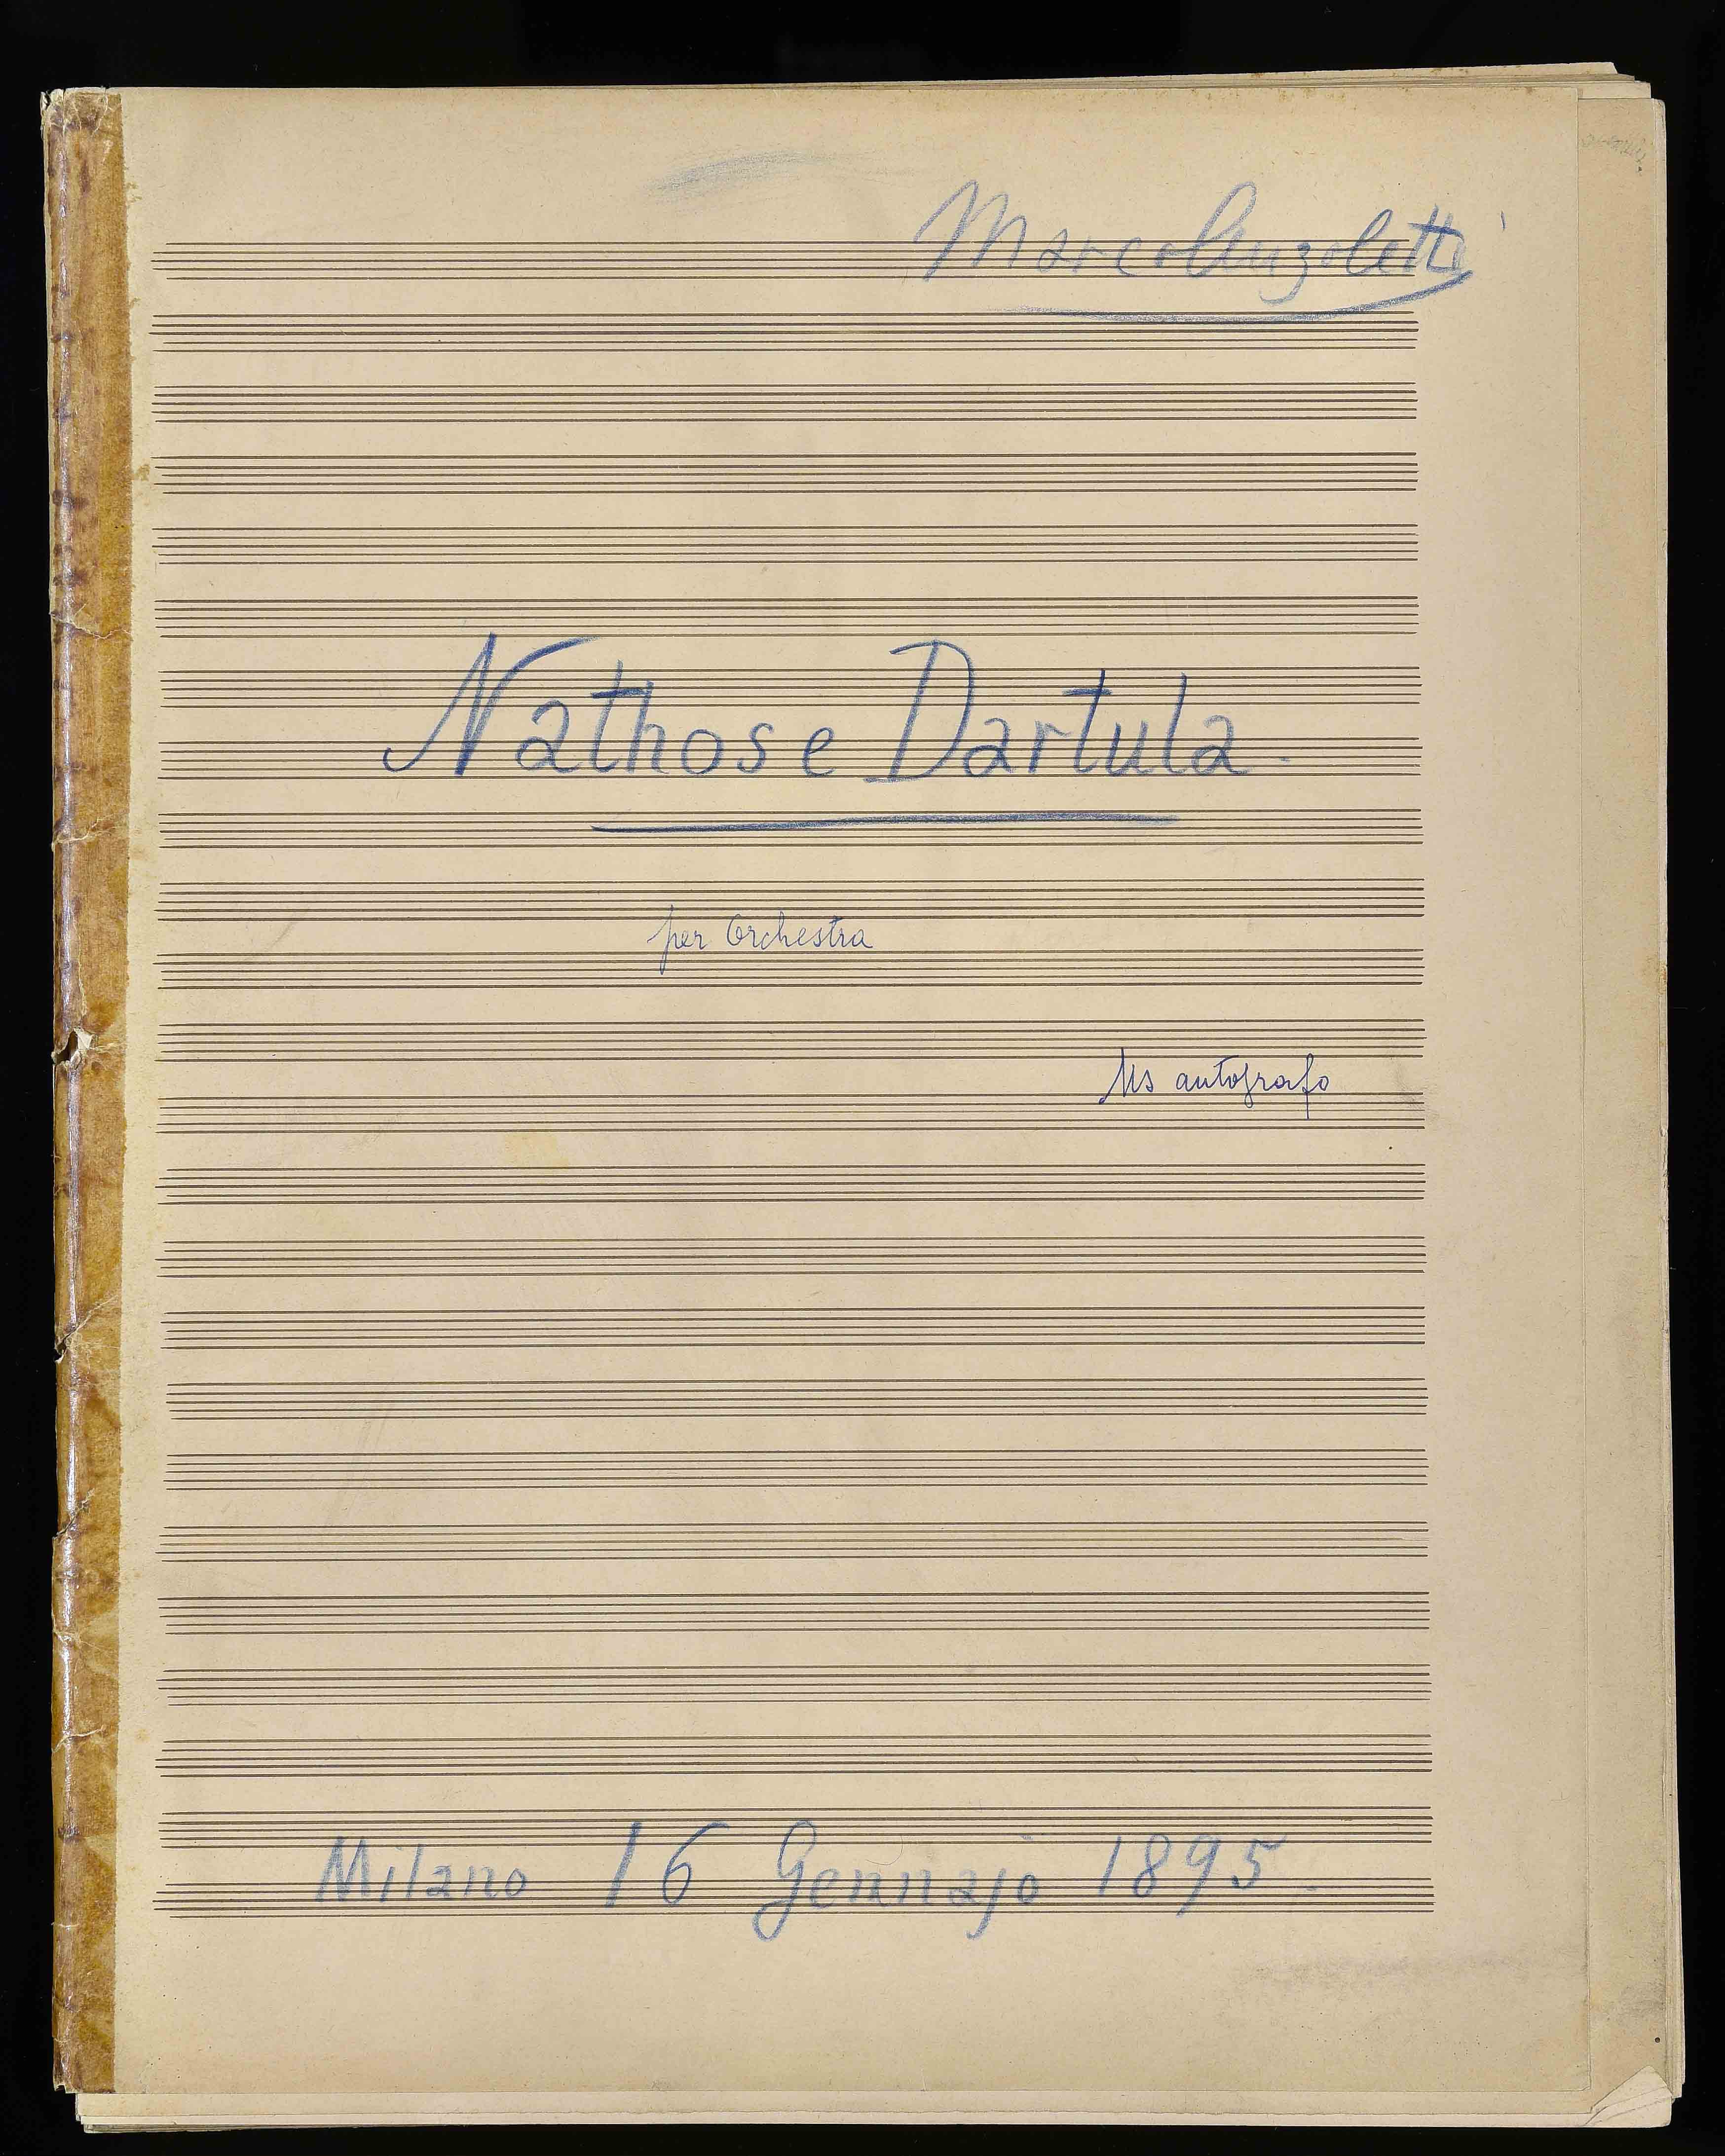 Marco Anzoletti
Nathos e Dartula.
per Orchestra
Ms autografo
Milano 16 Gennajo 1895.